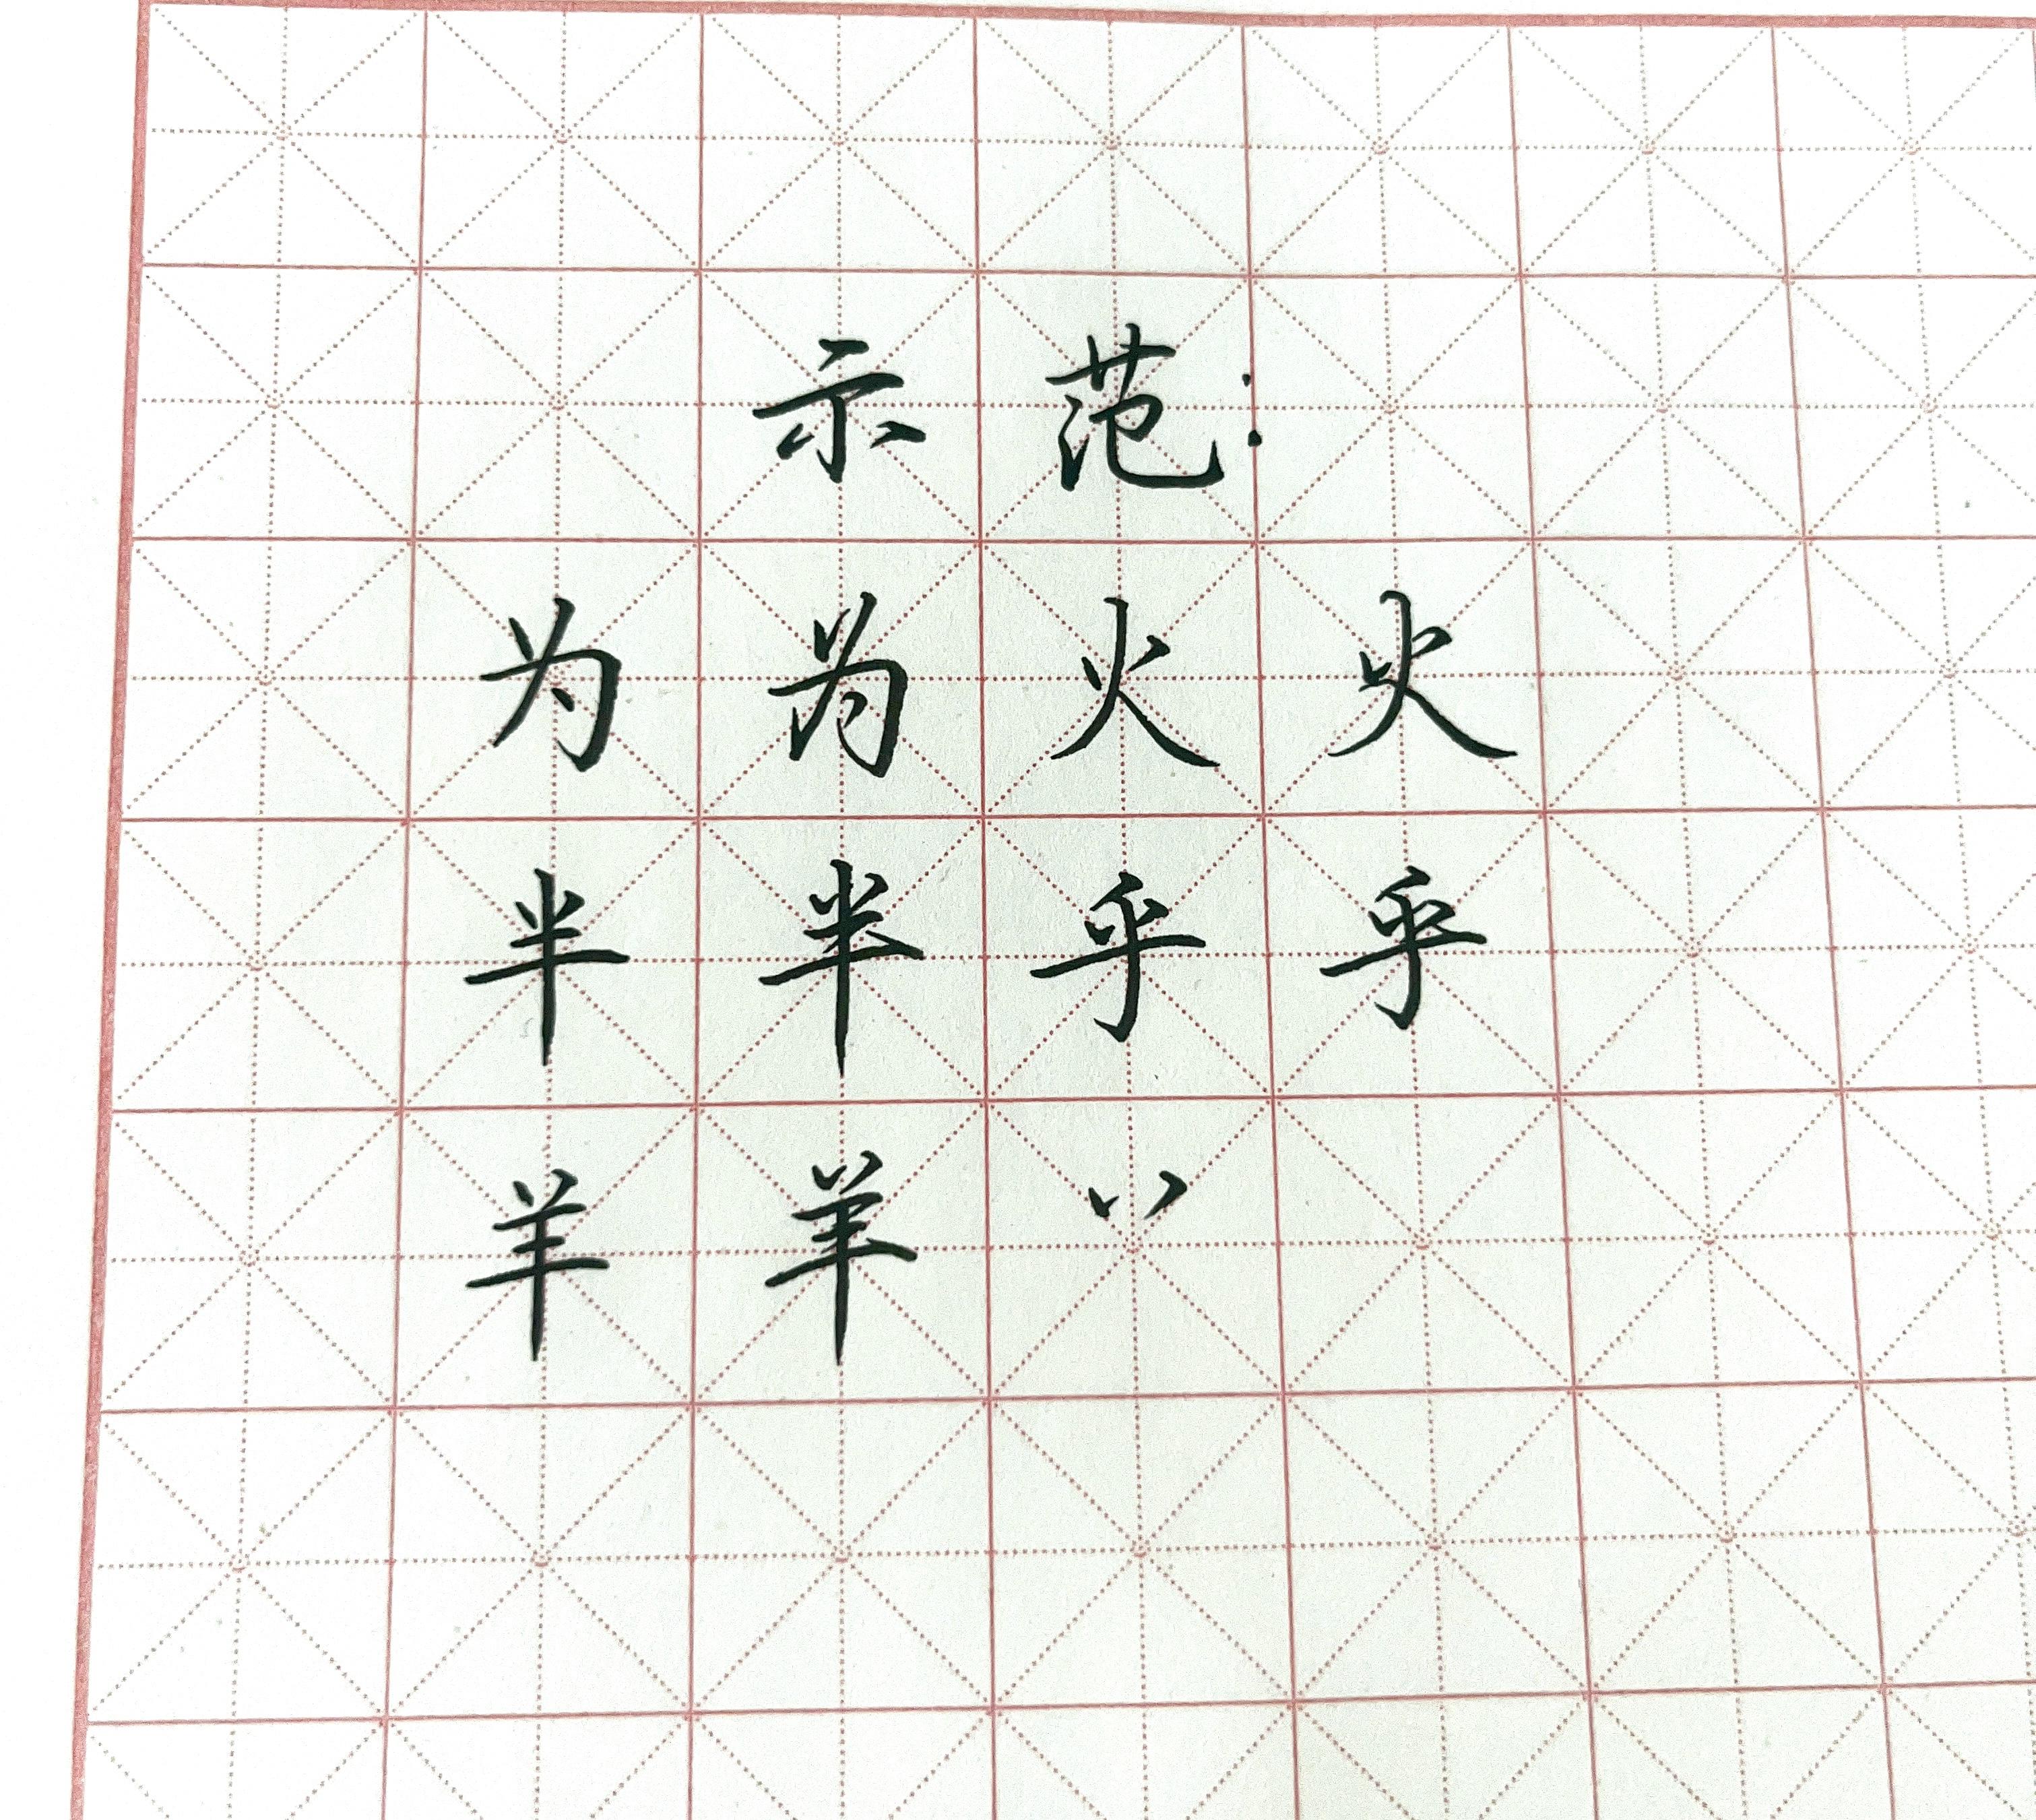 示范:
为为火火
半半乎乎
羊羊丷